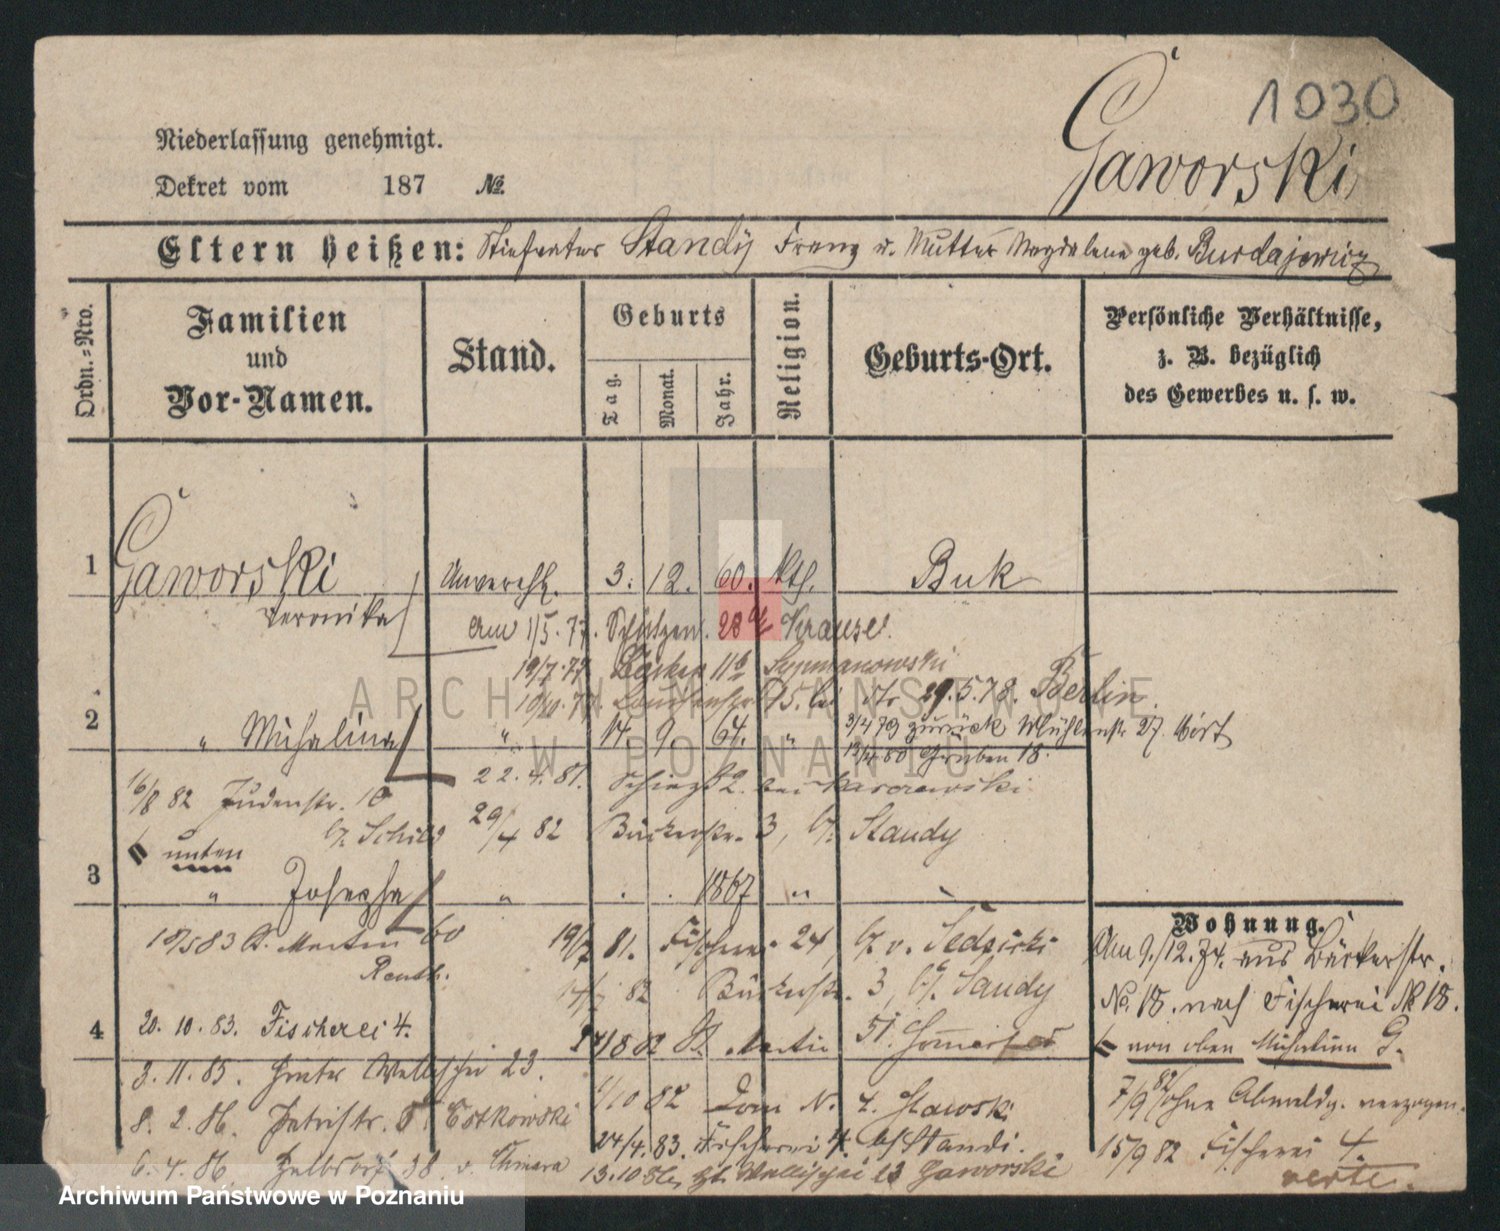 1030
Gaworski
Niederlassung genehmigt.
Dekret vom 187 №.
Eltern heißen: Stiefvater Standy Franz u. Mutter Magdalena geb. Burdajewicz
Ordn.=Nro.
Familien und Vor-Namen.
Stand.
Geburts
Tag.
Monat.
Jahr.
Religion.
Geburts-Ort.
Persönliche Verhältnisse, z. B. bezüglich des Gewerbes u. s. w.
1 Gaworski Unverehl. 3. 12. 60. kth. Buk
Veronika
am 1/5. 77. Schützen. 28 Krause.
19/7. 77 Bäcker 11b Szymanowski
29.5.78. Berlin.
2 " Michalina " 14. 9. 64. "
3/4 79 zurück Mühlenstr 27.
Graben 18.
22.4.81.
16/8 82 Judenstr. 10
b/ Schild
29/4 82 Bäckerstr. 3, b/. Standy
unten
3 " Josepha " . . 1867 "
Wohnung.
18/5 83 St. Martin 60
19/7 81. Fischerei 24, b/ v.
Am 9./12. 74. aus Bäckerstr.
No. 18. nach Fischerei № 18.
82 Bäckerstr. 3, b/.
4 20. 10. 83. Fischerei 4.
8 82 St. Martin 51.
von oben Michalina G.
3. 11. 85. Wallischei 23.
1/10 82 Dom N. 4.
7/9 82 ohne Abmeldg. verzogen.
8. 2. 86. 5. Cotkowski
24/4. 83. Fischerei 4. b/ Standi.
15/9 82 Fischerei 4.
6. 4. 86. 38 v.
13. 10 86. Wallischei 23 Gaworski
verte.
ARCHIWUM PAŃSTWOWE
W POZNANIU
Archiwum Państwowe w Poznaniu